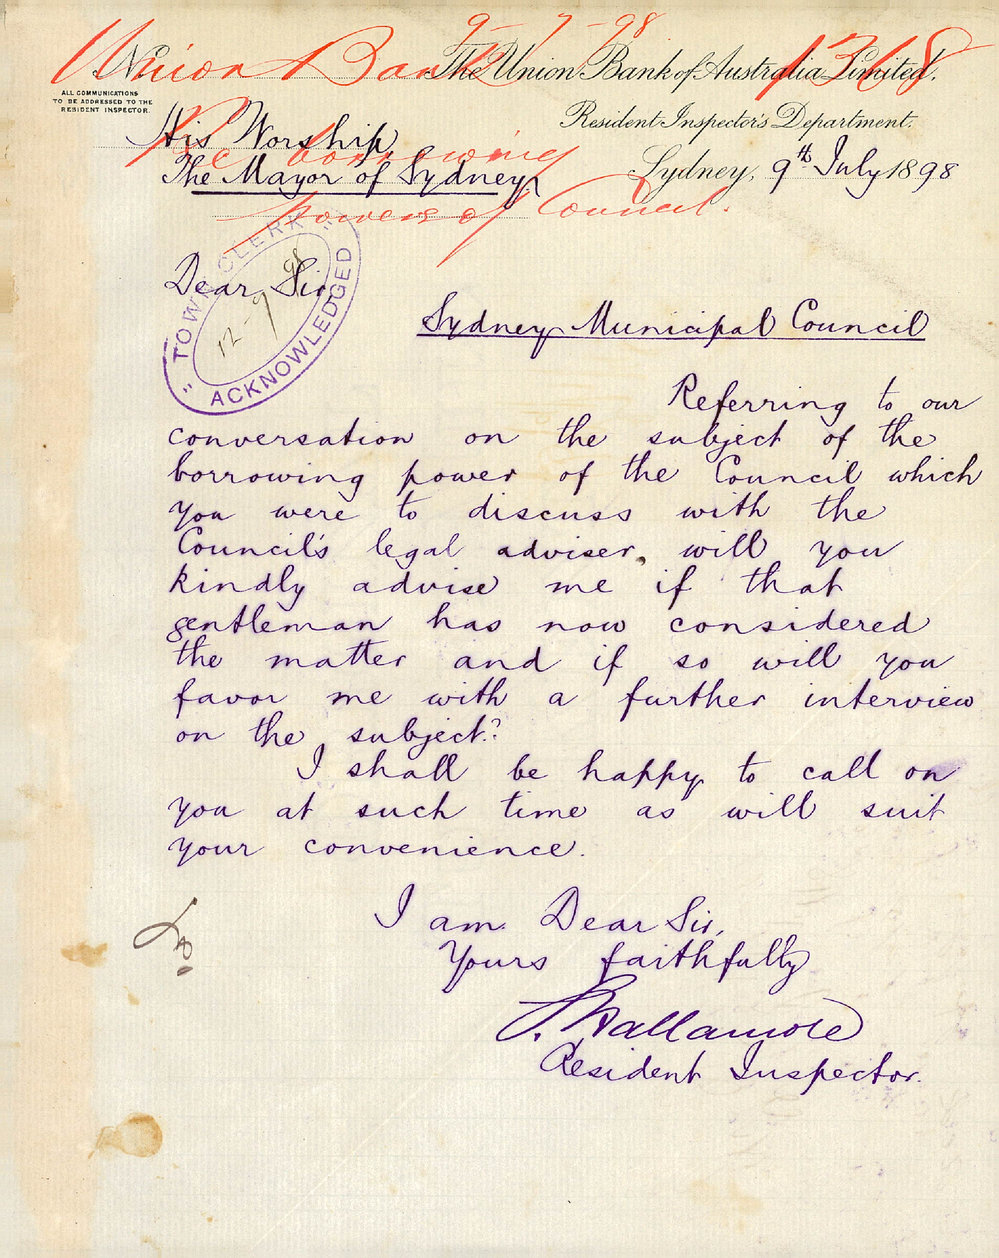 9-7-98
Union Bank 1368
No.
The Union Bank of Australia Limited.
ALL COMMUNICATIONS
TO BE ADDRESSED TO THE
RESIDENT INSPECTOR.
Resident Inspector's Department.
His Worship
Re borrowing
The Mayor of Sydney
Sydney, 9th July 1898
powers of Council.
"TOWN CLERK"
12-9 98
ACKNOWLEDGED
Dear Sir,
Sydney Municipal Council
Referring to our
conversation on the subject of the
borrowing power of the Council which
you were to discuss with the
Council's legal adviser, will you
kindly advise me if that
gentleman has now considered
the matter and if so will you
favor me with a further interview
on the subject?
I shall be happy to call on
you at such time as will suit
your convenience.
I am Dear Sir,
Yours faithfully
Hallamore
Resident Inspector.